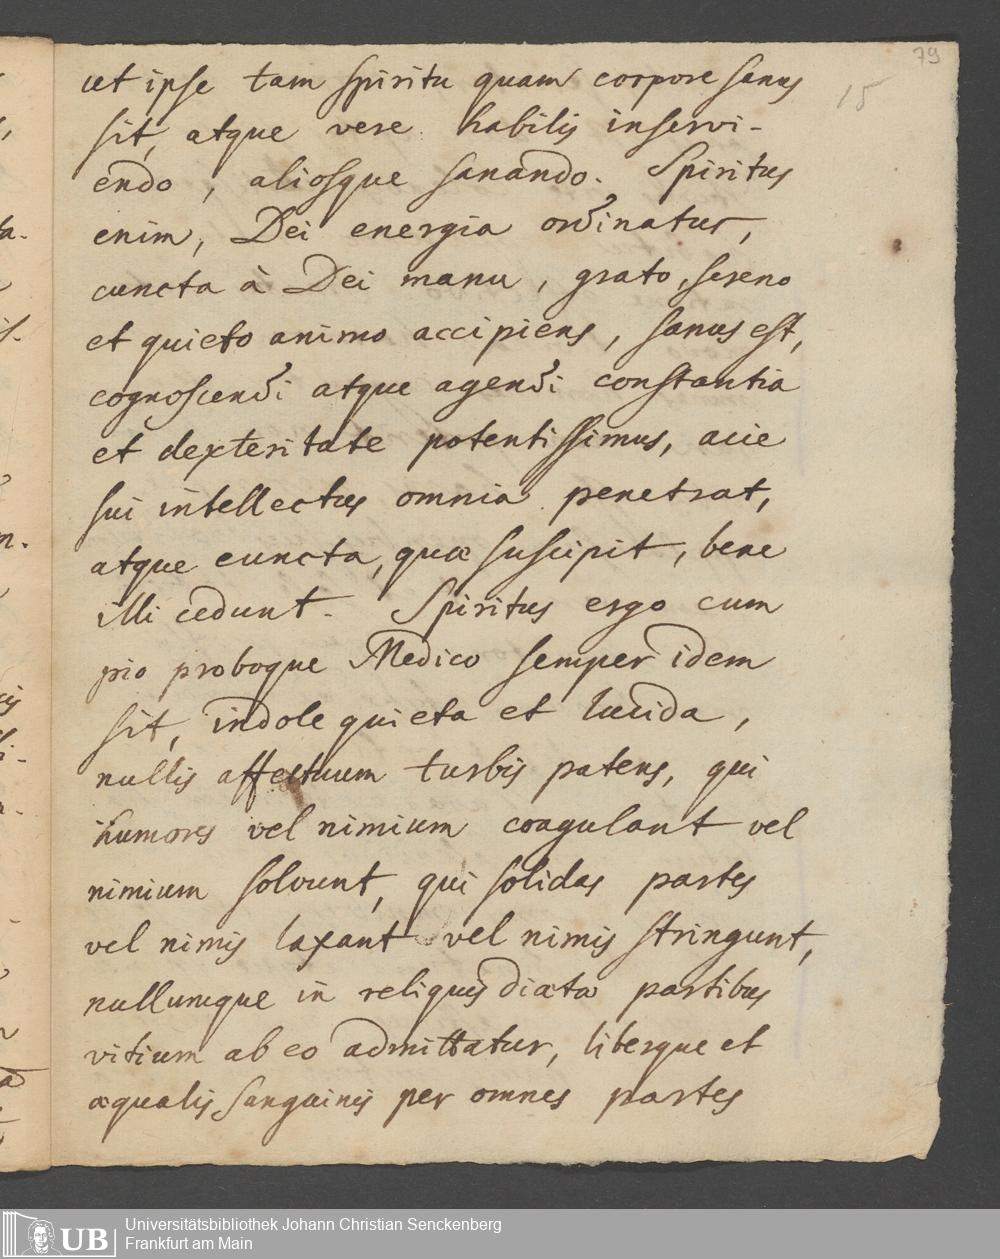 79
15
ut ipse tam spiritu quam corpore sanus
sit, atque vere habilis inservi-
endo, aliosque sanando. Spiritus
enim, Dei energia ordinatur,
cuncta à Dei manu, grato, sereno
et quieto animo accipiens, sanus est,
cognoscendi atque agendi constantia
et dexteritate potentissimus, acie
sui intellectus omnia penetrat,
atque cuncta, quæ suscipit, bene
illi cedunt. Spiritus ergo cum
pio proboque Medico semper idem
sit, indole quieta et lucida,
nullis affectuum turbis patens, qui
humores vel nimium coagulant vel
nimium solvunt, qui solidas partes
vel nimis laxant vel nimis stringunt,
nullumque in reliquis diætæ partibus
vitium ab eo admittatur, liberque et
æqualis sanguinis per omnes partes
UB
Universitätsbibliothek Johann Christian Senckenberg
Frankfurt am Main